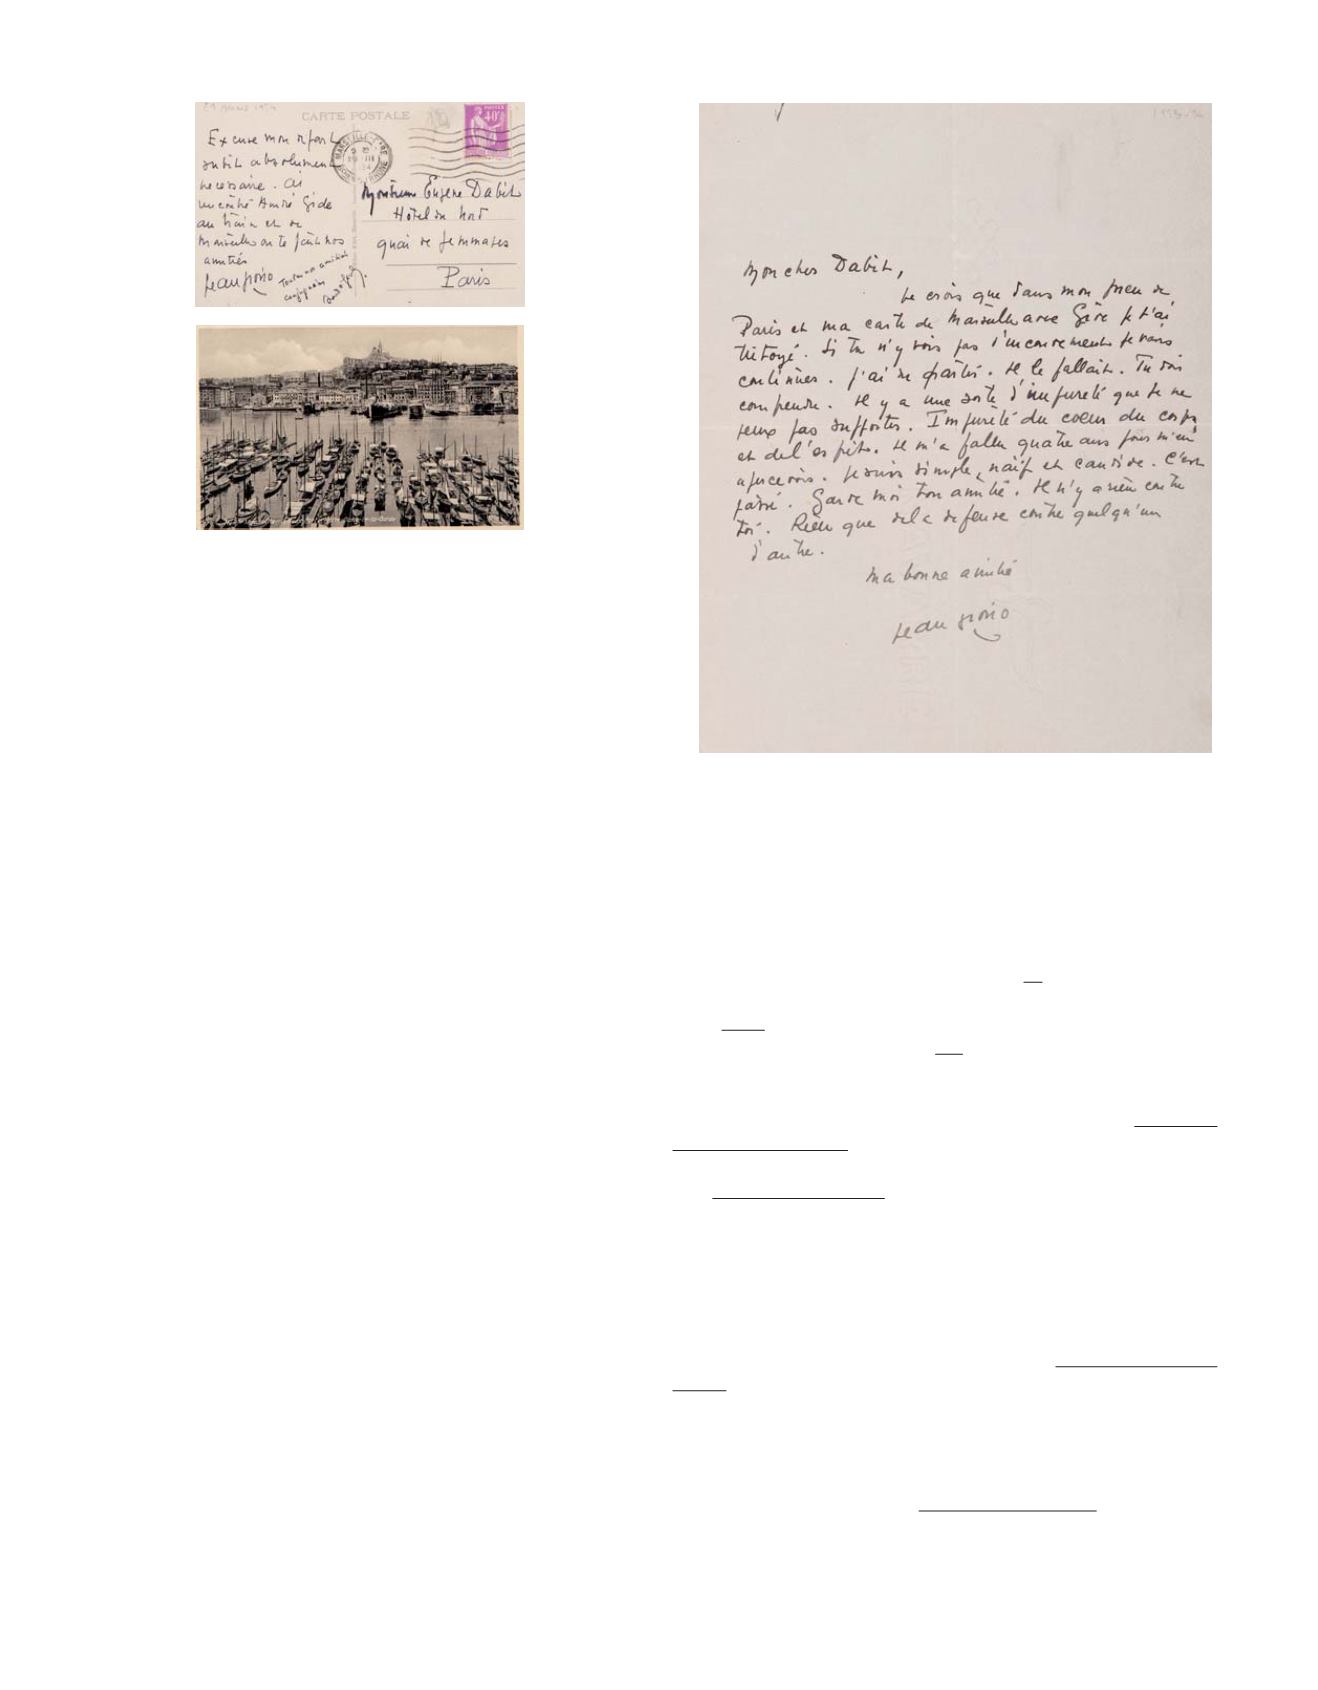 29 mars 1934
CARTE POSTALE
40c
Excuse mon départ
subit absolument
necessaire. Ai
rencontré André Gide
au train et de
Marseille on te fait nos
amitiés
Jean Giono
Toutes nos amitiés
conjuguées
MARSEILLE-GARE
29 III
34
Monsieur Eugène Dabit
Hôtel du Nord
quai de Jemmapes
Paris
Mon cher Dabit,
Je crois que dans mon pneu de
Paris et ma carte de Marseille avec Gide je t'ai
tutoyé. Si tu n'y vois pas d'inconvenients je vais
continuer. J'ai dû partir. Il le fallait. Tu vas
comprendre. Il y a une sorte d'impureté que je ne
peux pas supporter. Impureté du coeur du corps
et de l'esprit. Il m'a fallu quatre ans pour m'en
apercevoir. Je suis simple, naïf et candide. C'est
passé. Garde moi ton amitié. Il n'y a rien contre
toi. Rien que de la defense contre quelqu'un
d'autre.
Ma bonne amitié
Jean Giono